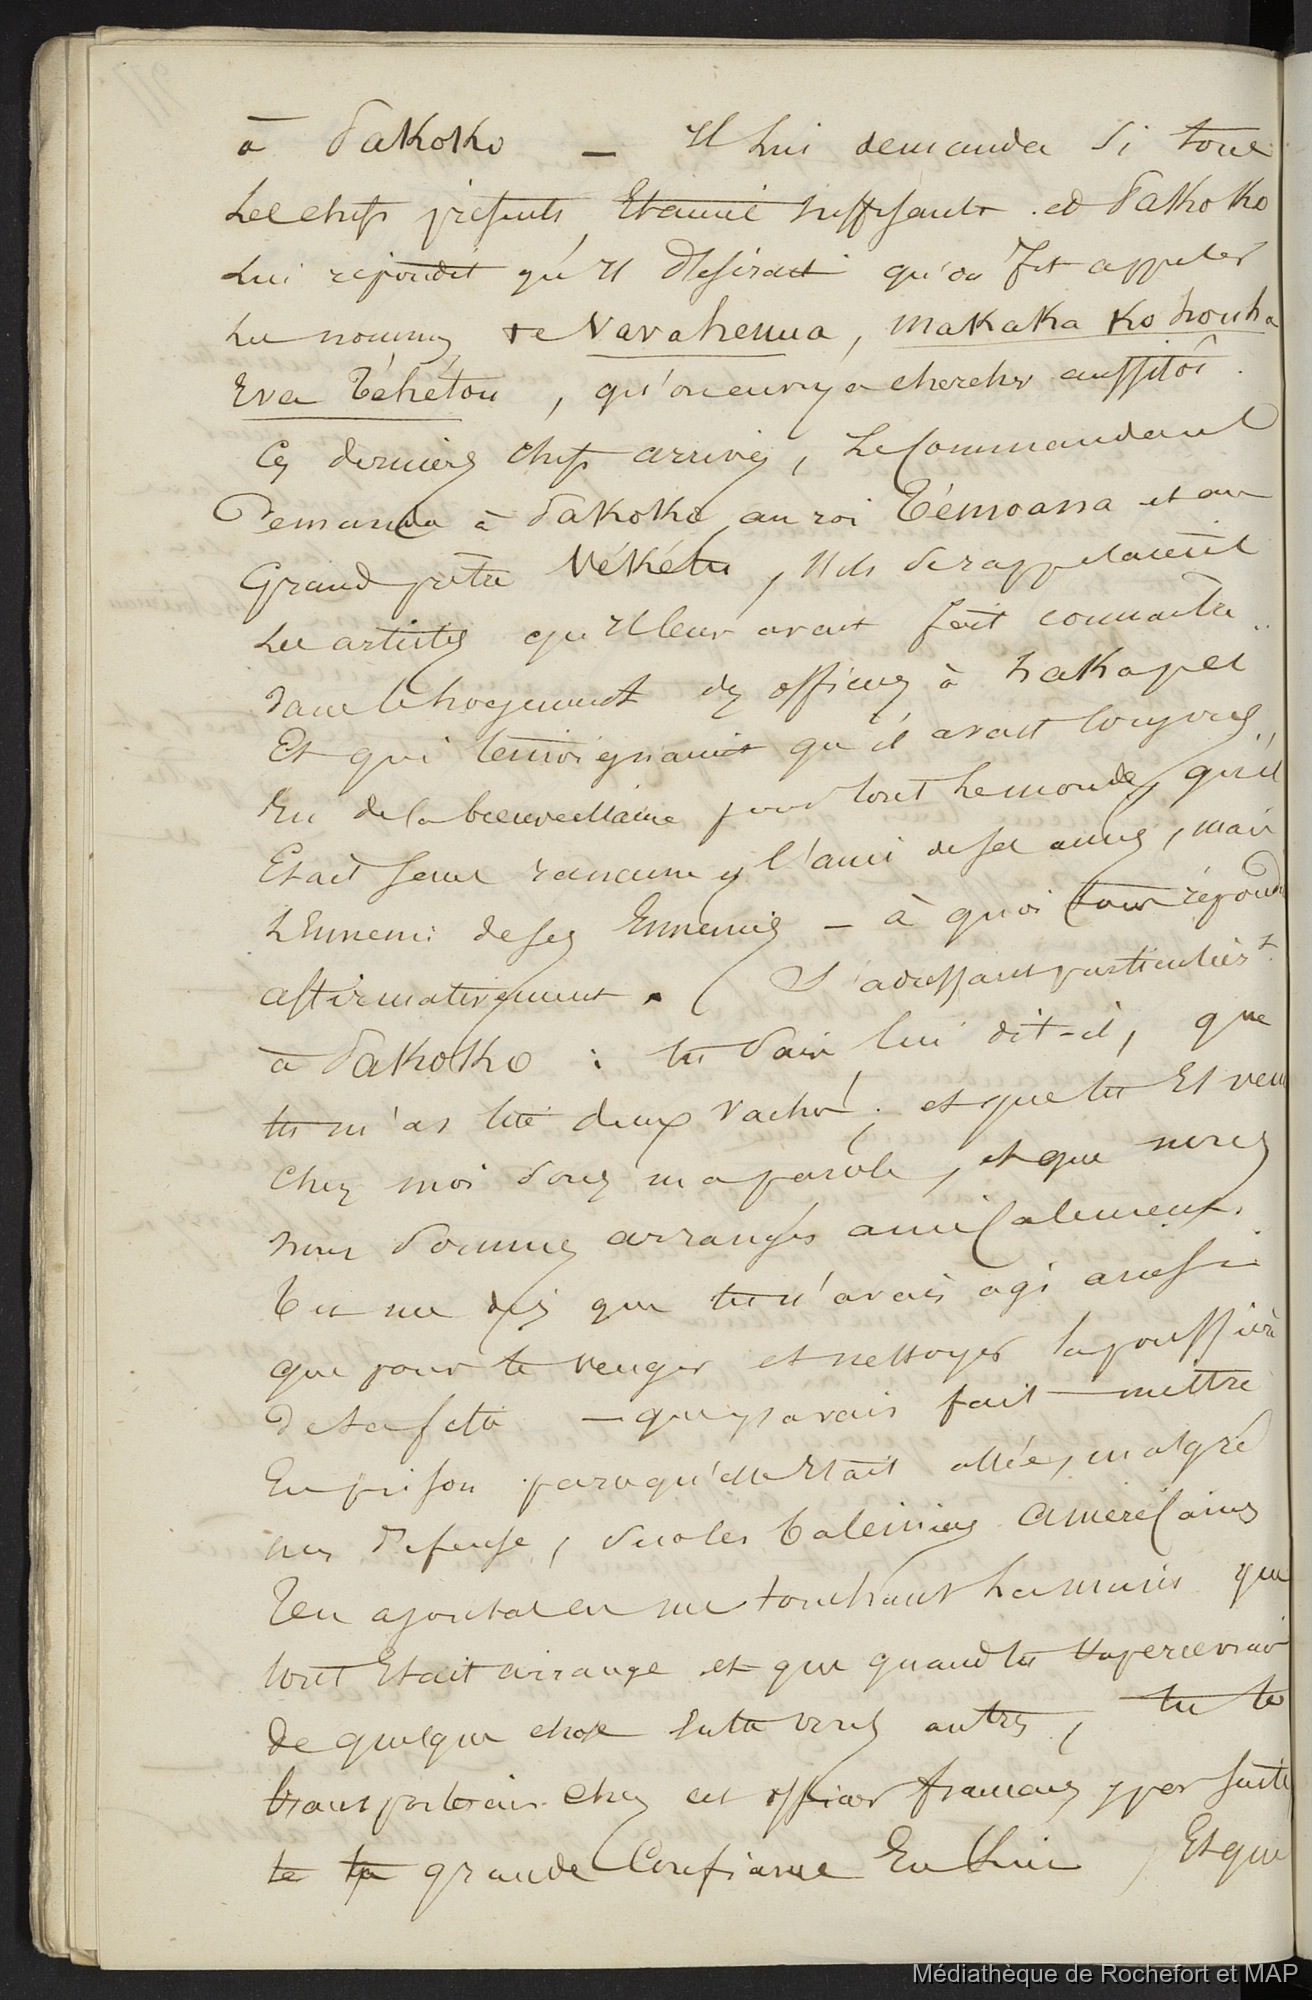 à Pakoko — Il lui demanda si tous
Les chefs présents Etaient suffisants et Pakoko
Lui répondit qu'Il Désirait qu'on fit appeler
Les nommés te Vavahenua, Makaka Ko houha
Eva Téhétou, qu'on envoya chercher aussitôt.
Ces derniers chefs arrivés, Le Commandant
Demanda à Pakoko au roi Témoana et au
Grand prêtre Vékétu, s'Ils se rappelaient
Les articles qu'Il leur avait fait connaitre
dans le Logement des officiers à hakapel
Et qui temoignaient qu'il avait toujours
Eu de la bienveillance pour tout Le monde, qu'il
Etait sans rancune, l'ami de ses amis, mais
L'Ennemi de ses Ennemis — à quoi tous répond
affirmativement. S'adressant particulièrt
à Pakoko : tu sais lui dit-il, que
tu m'as tué deux vaches; et que tu Es venu
chez moi sous ma parole, et que nous
nous sommes arrangés amicalement.
Tu me dis que tu n'avais agi aussi
que pour te venger et nettoyer la poussière
De ta fille — que j'avais fait mettre
En prison parcequ'elle Etait allée, malgré
mes Defense, sur les baleiniers Américains
Tu ajoutas en me touchant La main que
tout Etait arrangé et que quand tu t'apercevrais
de quelque chose Entre vous autres, tu te
transporterais chez cet officier français, par suite
te ta grande Confiance En Lui, Et que
Médiathèque de Rochefort et MAP